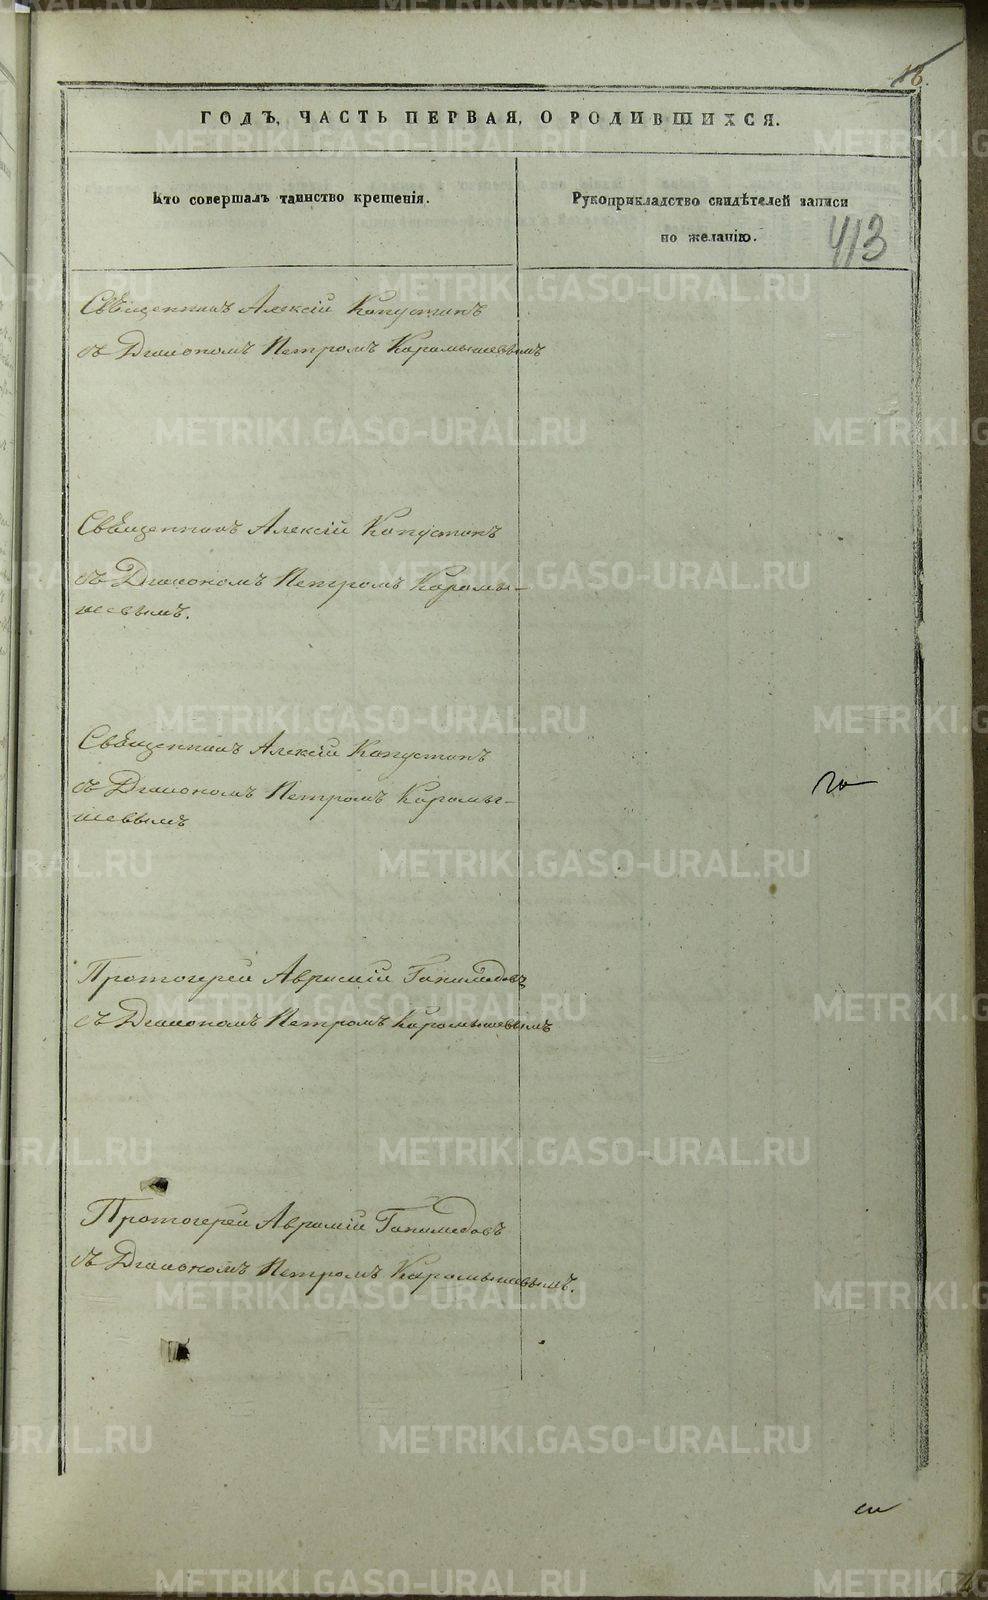 18.
ГОДЪ, ЧАСТЬ ПЕРВАЯ, О РОДИВШИХСЯ.
Кто совершалъ таинство крещенія.
Рукоприкладство свидѣтелей записи
по желанію.
413
Священникъ Алексій Капустинъ
съ Діакономъ Петромъ Карамышевымъ
Священникъ Алексій Капустинъ
съ Діакономъ Петромъ Карамы-
шевымъ.
Священникъ Алексій Капустинъ
съ Діакономъ Петромъ Карамы-
шевымъ
Протоіерей Аврамій Ганимедовъ
съ Діакономъ Петромъ Карамышевымъ
Протоіерей Аврамій Ганимедовъ
съ Діакономъ Петромъ Карамышевымъ.
METRIKI.GASO-URAL.RU